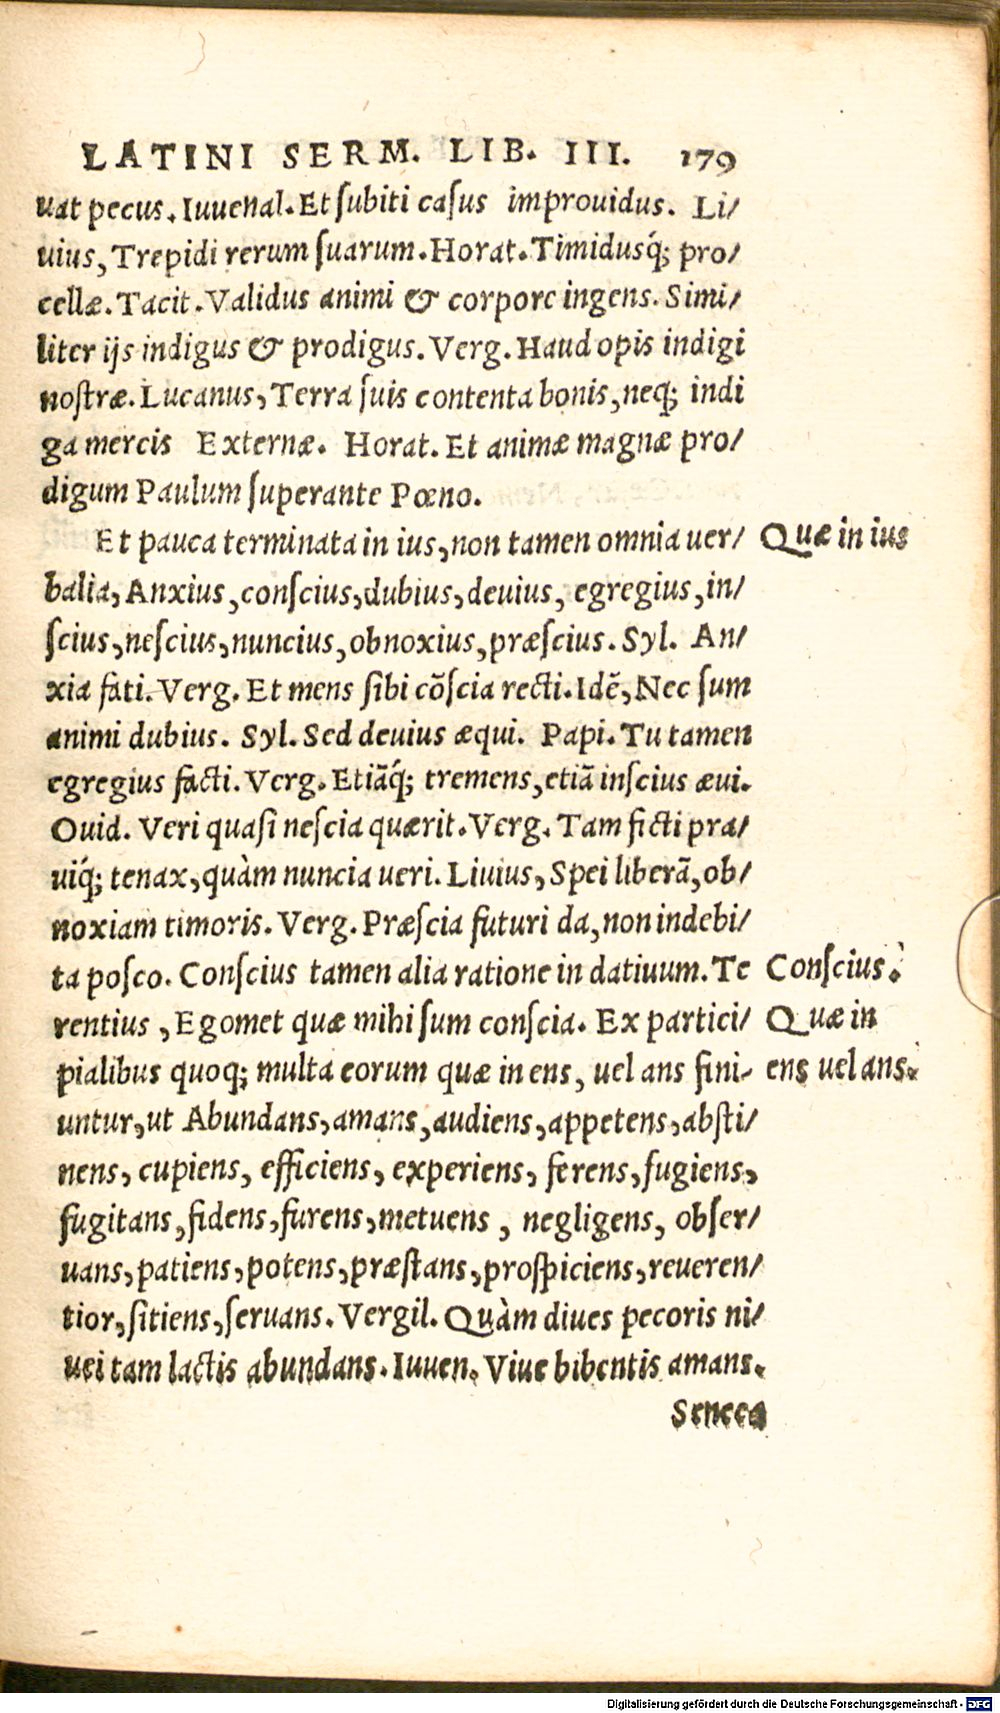 LATINI SERM. LIB. III. 179
uat pecus. Iuuenal. Et ſubiti caſus improuidus. Li/
uius, Trepidi rerum ſuarum. Horat. Timidusq́; pro/
cellæ. Tacit. Validus animi & corpore ingens. Simi/
liter ijs indigus & prodigus. Verg. Haud opis indigi
noſtræ. Lucanus, Terra ſuis contenta bonis, neq; indi
ga mercis Externæ. Horat. Et animæ magnæ pro/
digum Paulum ſuperante Pœno.
Et pauca terminata in ius, non tamen omnia uer/ Quæ in ius
balia, Anxius, conſcius, dubius, deuius, egregius, in/
ſcius, neſcius, nuncius, obnoxius, præſcius. Syl. An/
xia fati. Verg. Et mens ſibi cōſcia recti. Idē, Nec ſum
animi dubius. Syl. Sed deuius æqui. Papi. Tu tamen
egregius facti. Verg. Etiāq́; tremens, etiā inſcius æui.
Ouid. Veri quaſi neſcia quærit. Verg. Tam ficti pra/
uiq́; tenax, quàm nuncia ueri. Liuius, Spei liberā, ob/
noxiam timoris. Verg. Præſcia futuri da, non indebi/
ta poſco. Conſcius tamen alia ratione in datiuum. Te Conſcius.
rentius, Egomet quæ mihi ſum conſcia. Ex partici/ Quæ in
pialibus quoq; multa eorum quæ in ens, uel ans fini- ens uel ans.
untur, ut Abundans, amans, audiens, appetens, abſti/
nens, cupiens, efficiens, experiens, ferens, fugiens,
fugitans, fidens, furens, metuens, negligens, obſer/
uans, patiens, potens, præſtans, proſpiciens, reueren/
tior, ſitiens, ſeruans. Vergil. Quàm diues pecoris ni/
uei tam lactis abundans. Iuuen. Viue bibentis amans.
Seneca
Digitalisierung gefördert durch die Deutsche Forschungsgemeinschaft - DFG